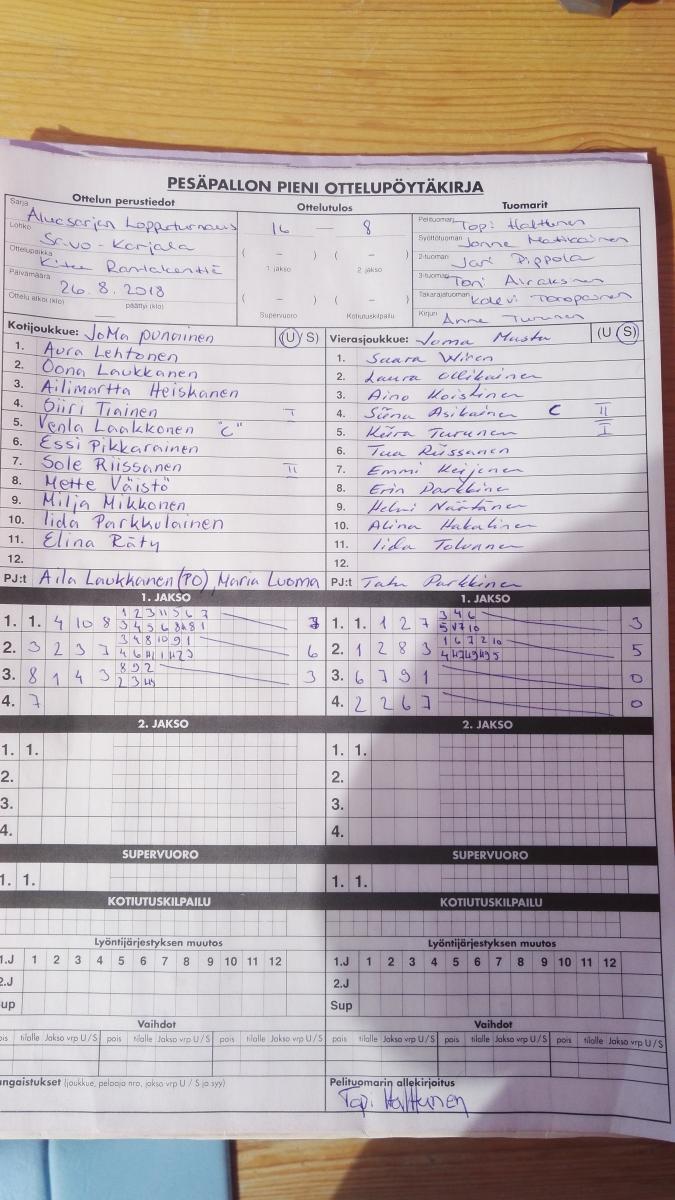 PESÄPALLON PIENI OTTELUPÖYTÄKIRJA
Ottelun perustiedot Ottelutulos Tuomarit
Sarja Aluesarjan Lopputurnaus
Lohko Savo-Karjala
Ottelupaikka Kitee Rantakenttä
Päivämäärä 26.8.2018
Ottelu alkoi (klo) päättyi (klo)
16 — 8
( – ) ( – )
1. jakso 2. jakso
( – ) ( – )
Supervuoro Kotiutuskilpailu
Pelituomari Topi Halttunen
Syöttötuomari Jonne Matikainen
2-tuomari Jari Pippola
3-tuomari Toni Airaksinen
Takarajatuomari Kalevi Toropainen
Kirjuri Anne Turunen
Kotijoukkue: JoMa punainen (U S)
1. Aura Lehtonen
2. Oona Laukkanen
3. Ailimartta Heiskanen
4. Siiri Tiainen I
5. Venla Laakkonen "C"
6. Essi Pikkarainen
7. Sole Riissanen II
8. Mette Väistö
9. Milja Mikkonen
10. Iida Parkkulainen
11. Elina Räty
12.
PJ:t Aila Laukkanen (PO), Maria Luoma
Vierasjoukkue: Joma Musta (U S)
1. Saara Wiren
2. Laura Ollikainen
3. Aino Koistinen
4. Siina Asikainen C II
5. Kiira Turunen I
6. Tua Riissanen
7. Emmi Keijonen
8. Erin Parkkinen
9. Helmi Näätänen
10. Alina Hakalinen
11. Iida Tolvanen
12.
PJ:t Tatu Parkkinen
1. JAKSO
1. 1. 4 10 8
2. 3 2 3 7 6
3. 8 1 4 3 8 9 2 3
4. 7
1. JAKSO
1. 1. 1 2 7 3 4 6 3
2. 1 2 8 3 1 6 7 2 10 5
3. 6 7 9 1 0
4. 2 2 6 7 0
2. JAKSO 2. JAKSO
1. 1. 1. 1.
2. 2.
3. 3.
4. 4.
SUPERVUORO SUPERVUORO
1. 1. 1. 1.
KOTIUTUSKILPAILU KOTIUTUSKILPAILU
Lyöntijärjestyksen muutos Lyöntijärjestyksen muutos
1.J 1 2 3 4 5 6 7 8 9 10 11 12 1.J 1 2 3 4 5 6 7 8 9 10 11 12
2.J 2.J
Sup Sup
Vaihdot Vaihdot
pois tilalle Jakso vrp U/S pois tilalle Jakso vrp U/S pois tilalle Jakso vrp U/S pois tilalle Jakso vrp U/S pois tilalle Jakso vrp U/S pois tilalle Jakso vrp U/S
ngaistukset (joukkue, pelaaja nro, jakso vrp U / S ja syy) Pelituomarin allekirjoitus
Topi Halttunen